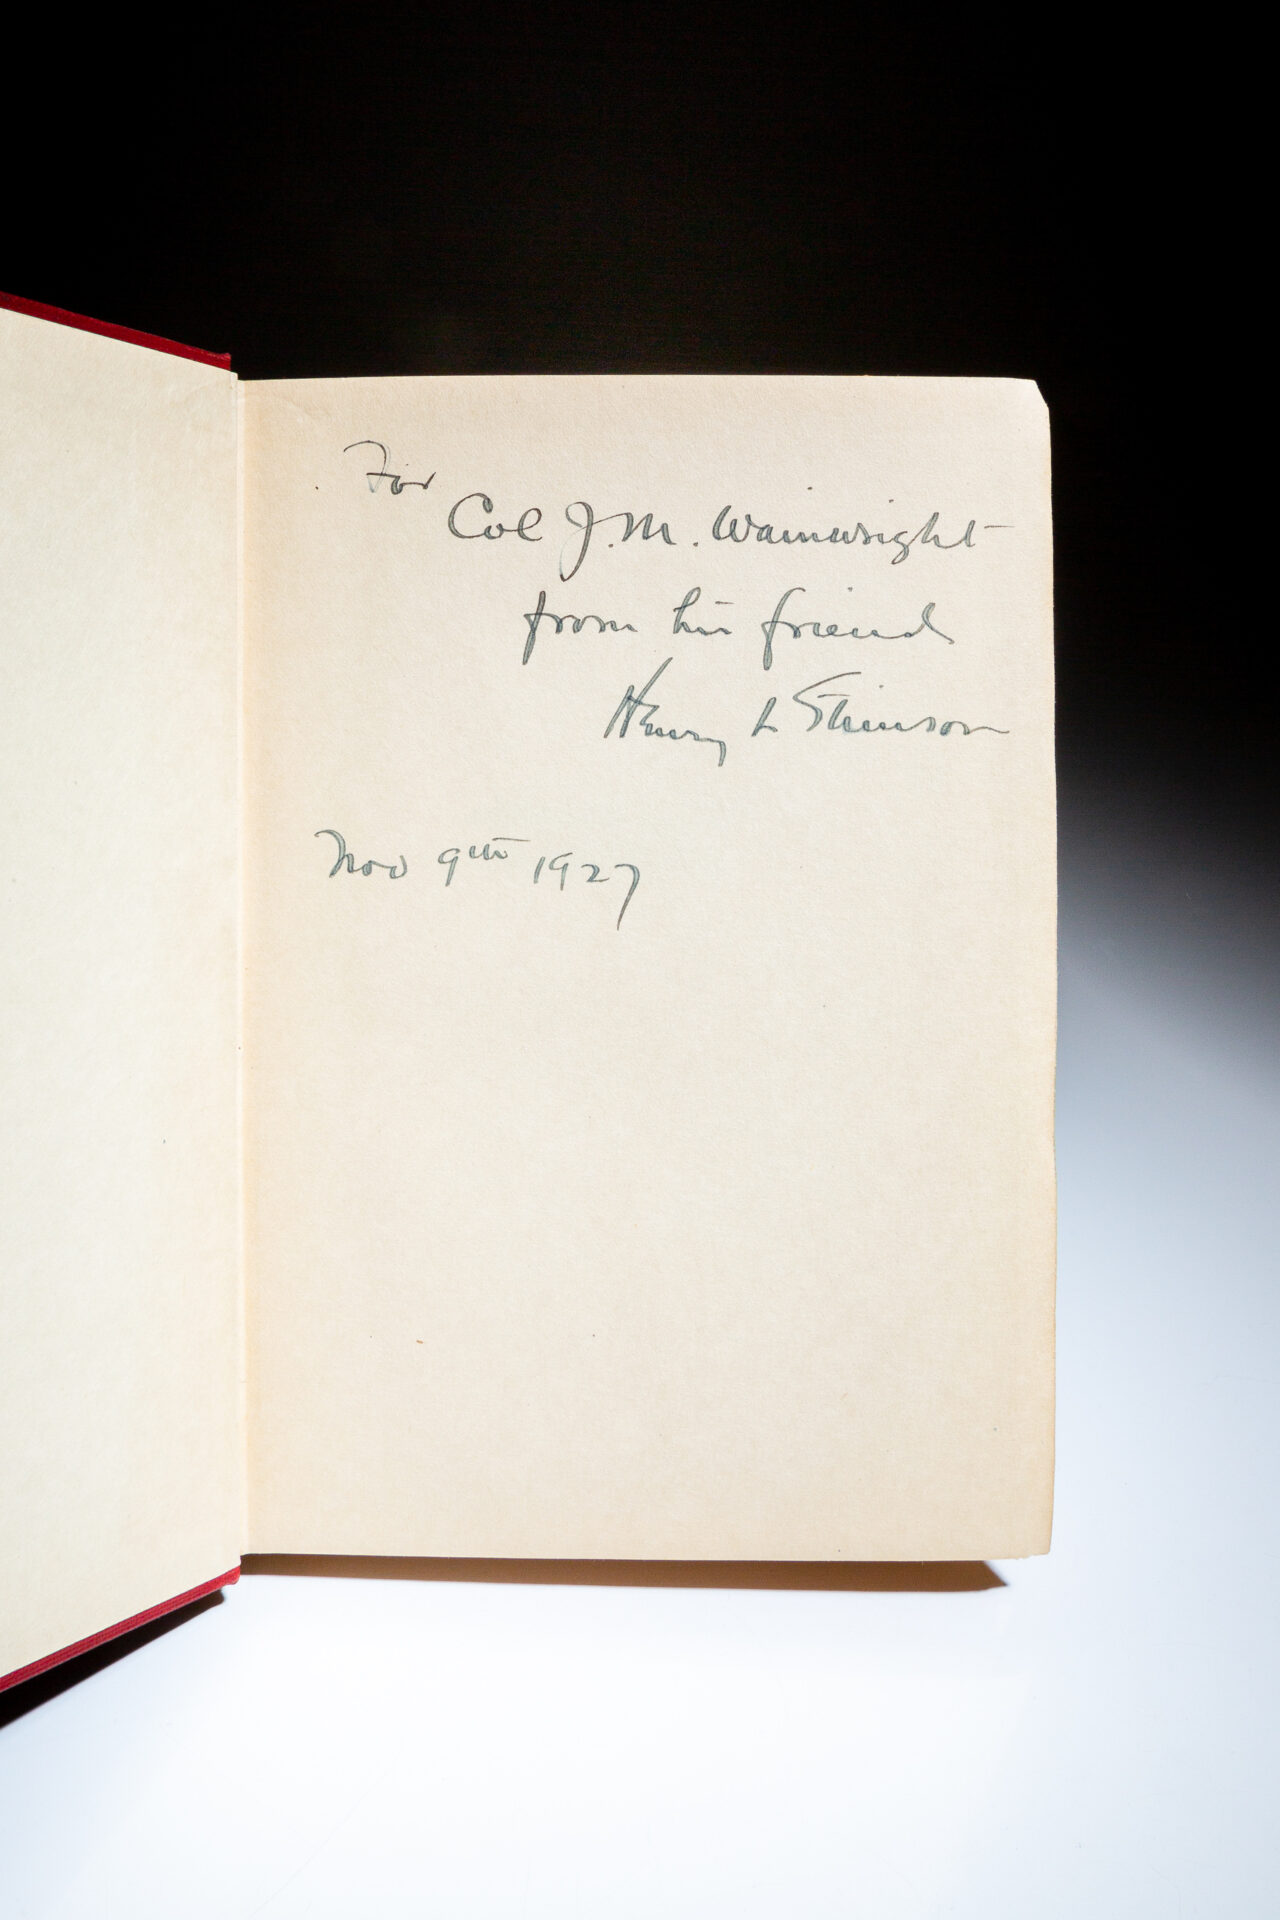 For
Col J. M. Wainwright
from his friend
Henry L Stimson
Nov 9th 1927